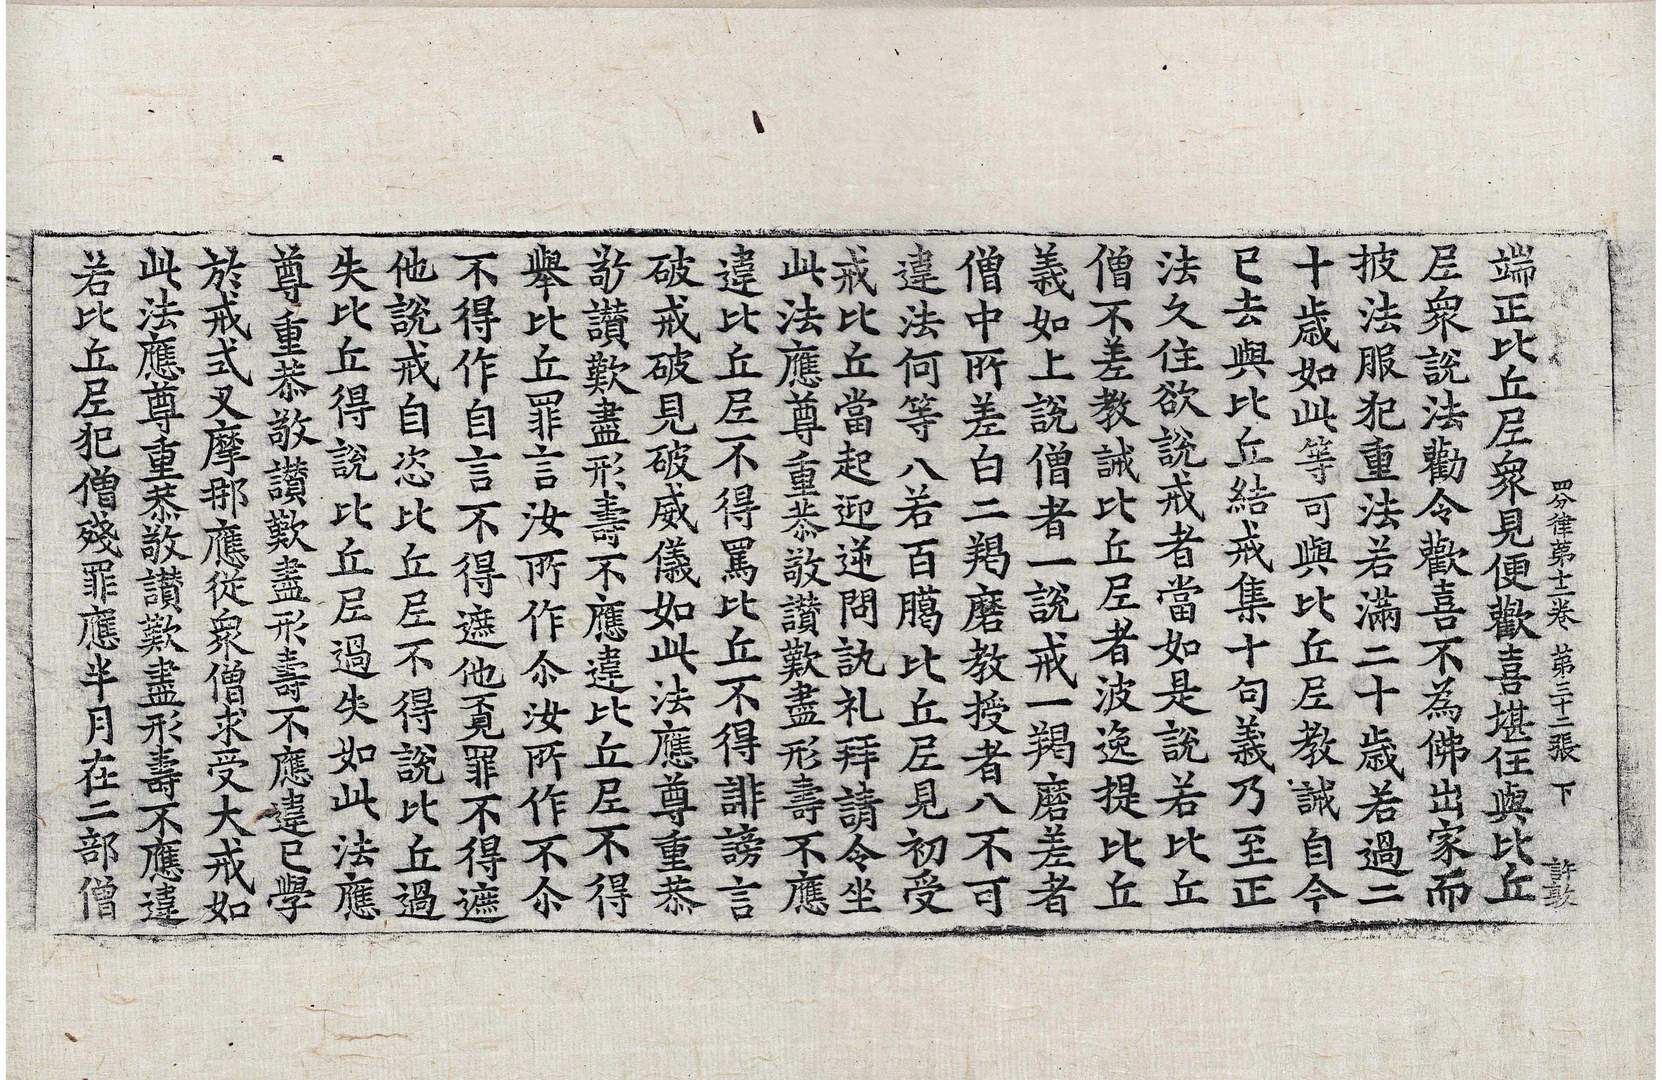 四分律苐十二卷 苐三十二張 下 許敦
端正比丘尼衆見便歡喜堪任與比丘
尼衆說法勸令歡喜不為佛出家而
披法服犯重法若滿二十歲若過二
十歲如此等可與比丘尼教誡自今
已去與比丘結戒集十句義乃至正
法久住欲說戒者當如是說若比丘
僧不差教誡比丘尼者波逸提比丘
義如上說僧者一說戒一羯磨差者
僧中所差白二羯磨教授者八不可
違法何等八若百臈比丘尼見初受
戒比丘當起迎逆問訊礼拜請令坐
此法應尊重恭敬讃歎盡形壽不應
違比丘尼不得罵比丘不得誹謗言
破戒破見破威儀如此法應尊重恭
敬讃歎盡形壽不應違比丘尼不得
舉比丘罪言汝所作尒汝所作不尒
不得作自言不得遮他覓罪不得遮
他說戒自恣比丘尼不得說比丘過
失比丘得說比丘尼過失如此法應
尊重恭敬讃歎盡形壽不應違已學
於戒式叉摩那應從衆僧求受大戒如
此法應尊重恭敬讃歎盡形壽不應違
若比丘尼犯僧殘罪應半月在二部僧